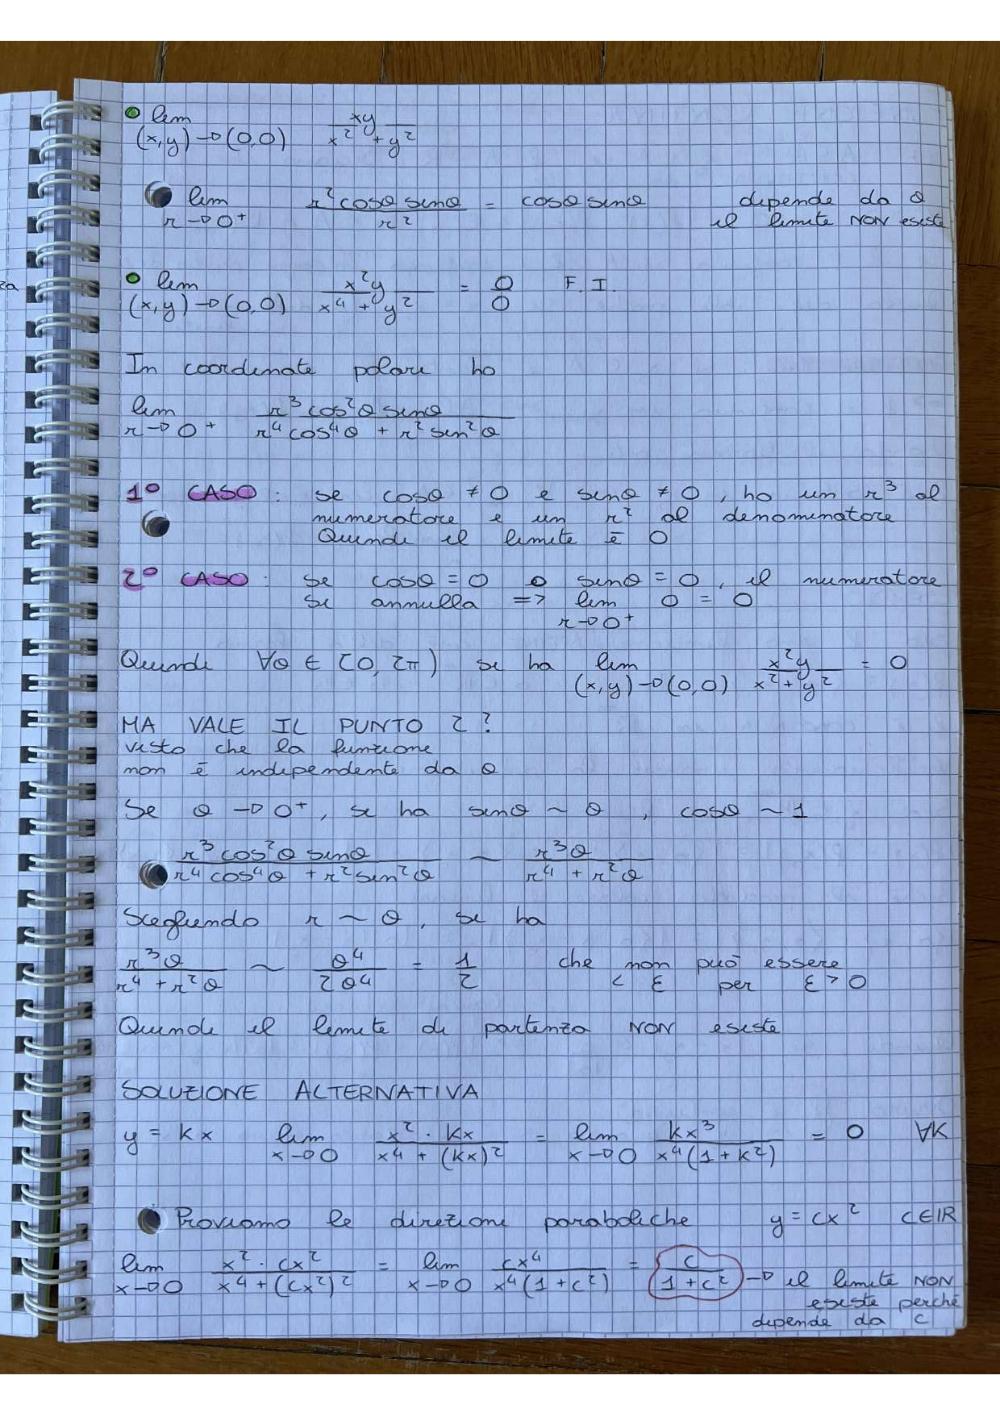 lim xy
(x,y)→(0,0) x² + y²
lim r² cosθ sinθ = cosθ sinθ depende da θ
r→0⁺ r² il limite NON esiste
za
lim x²y = 0 F. I.
(x,y)→(0,0) x⁴ + y² 0
In coordinate polari ho
lim r³ cos²θ sinθ
r→0⁺ r⁴ cos⁴θ + r² sin²θ
1° CASO: se cosθ ≠ 0 e sinθ ≠ 0, ho un r³ al
numeratore e un r² al denominatore
Quindi il limite è 0
2° CASO: se cosθ = 0 o sinθ = 0, il numeratore
si annulla => lim 0 = 0
r→0⁺
Quindi ∀θ ∈ [0, 2π) si ha lim x²y = 0
(x,y)→(0,0) x² + y²
MA VALE IL PUNTO 2?
visto che la funzione
non è indipendente da θ
Se θ → 0⁺, si ha sinθ ~ θ, cosθ ~ 1
r³ cos²θ sinθ ~ r³θ
r⁴ cos⁴θ + r² sin²θ r⁴ + r²θ
Scegliendo r ~ θ, si ha
r³θ ~ θ⁴ = 1 che non può essere
r⁴ + r²θ 2θ⁴ 2 < ε per ε > 0
Quindi il limite di partenza NON esiste
SOLUZIONE ALTERNATIVA
y = kx lim x² · kx = lim kx³ = 0 ∀k
x→0 x⁴ + (kx)² x→0 x⁴(1 + k²)
Proviamo le direzioni paraboliche y = cx² c∈ℝ
lim x² · cx² = lim cx⁴ = c → il limite NON
x→0 x⁴ + (cx²)² x→0 x⁴(1 + c²) 1 + c² esiste perché
depende da c